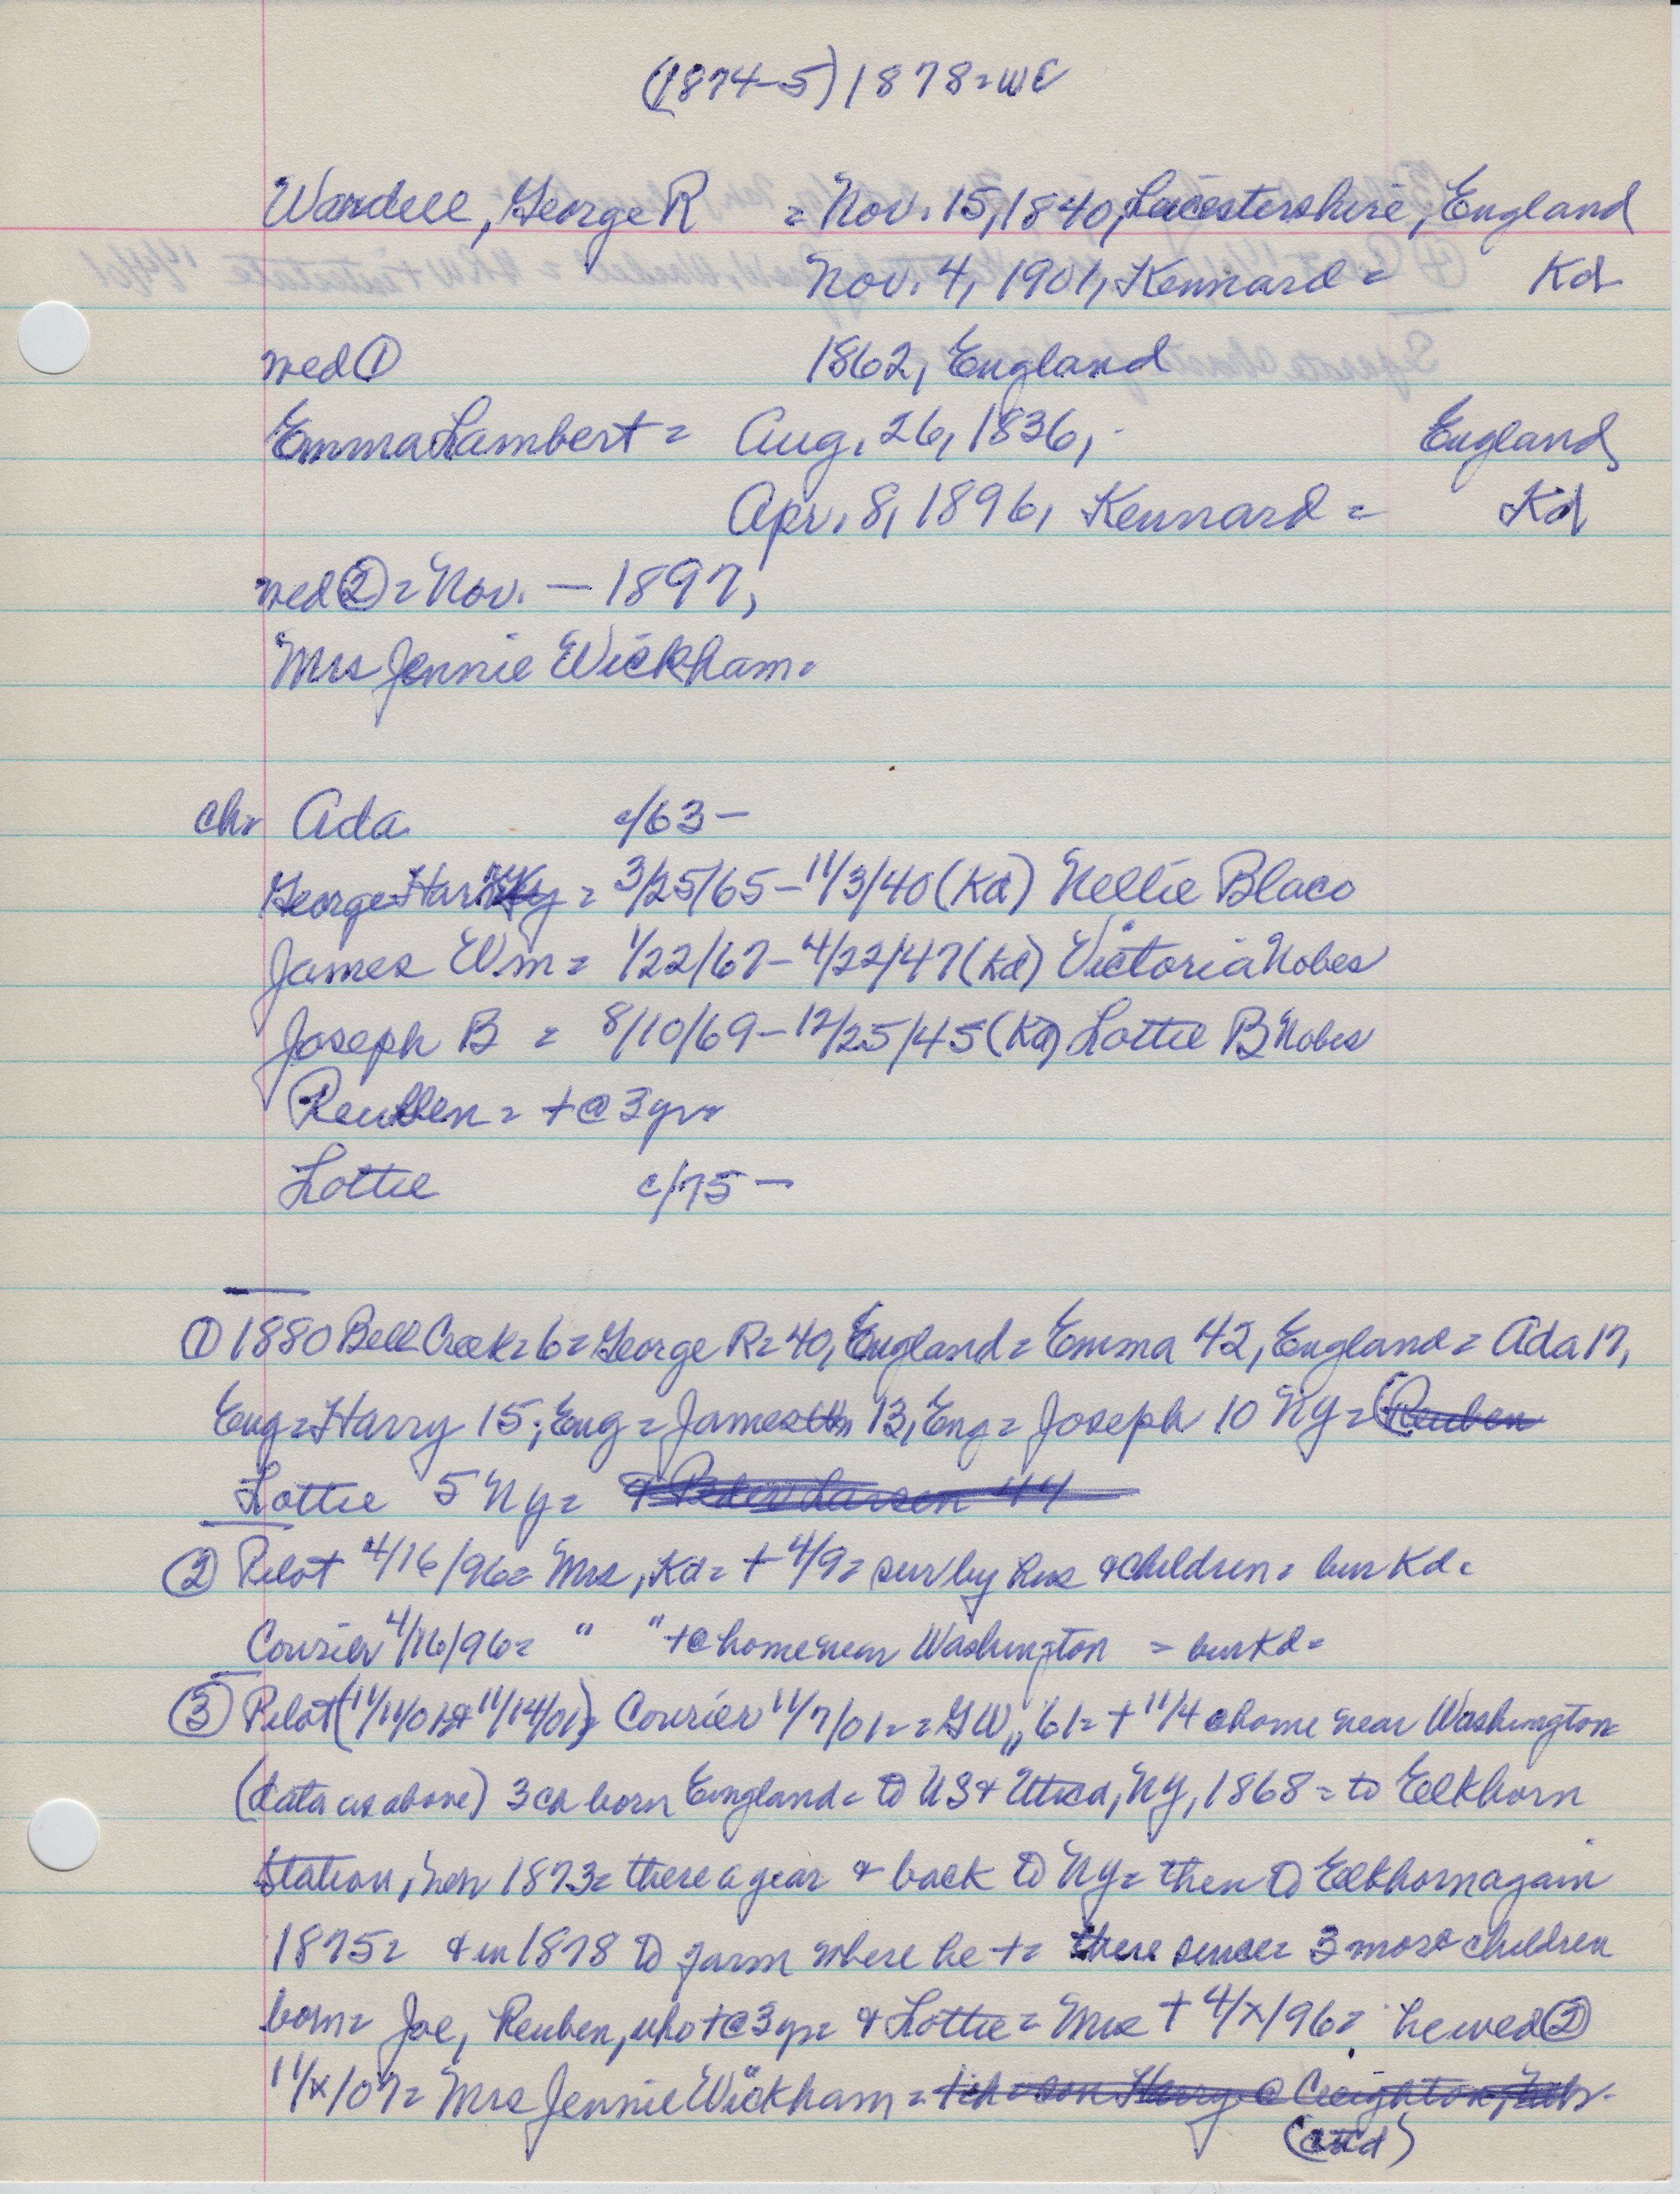 (1874-5) 1878=WC
Wardell, George R = Nov. 15, 1840, Leicestershire, England
Nov. 4, 1901, Kennard = Kd
wed ① 1862, England
Emma Lambert = Aug. 26, 1836, England
Apr. 8, 1896, Kennard = Kd
wed ② = Nov. — 1897,
Mrs Jennie Wickham =
ch= Ada c/63 —
George Harry = 3/25/65 - 11/3/40 (Kd) Nellie Blaco
James Wm = 1/22/67 - 4/22/47 (Kd) Victoria Nobes
Joseph B = 8/10/69 - 12/25/45 (Kd) Lottie B Nobes
Reuben = + @ 3 yr=
Lottie c/75 —
① 1880 Bell Creek = 6 = George R = 40, England = Emma 42, England = Ada 17,
Eng = Harry 15, Eng = James 13, Eng = Joseph 10 Ny = (Reuben
Lottie 5 Ny = & Peder Larsen 44
② Pilot 4/16/96 = Mrs, Kd = + 4/9 = sur by hus & children = bur Kd =
Courier 4/16/96 = " " + @ home near Washington = bur Kd =
③ Pilot (11/11/01 & 11/14/01) Courier 11/7/01 = = GW,, 61 = + 11/4 @ home near Washington
(data as above) 3 ch born England = to US & Utica, Ny, 1868 = to Elkhorn
Station, 1873 = there a year & back to Ny = then to Elkhorn again
1875 = & in 1878 to farm where he + = there since = 3 more children
born = Joe, Reuben, who + @ 3 yr = & Lottie = Mrs + 4/x/96 = he wed ②
11/x/07 = Mrs Jennie Wickham = 1 ch = son Harry @ Creighton, Neb.
(cttd)